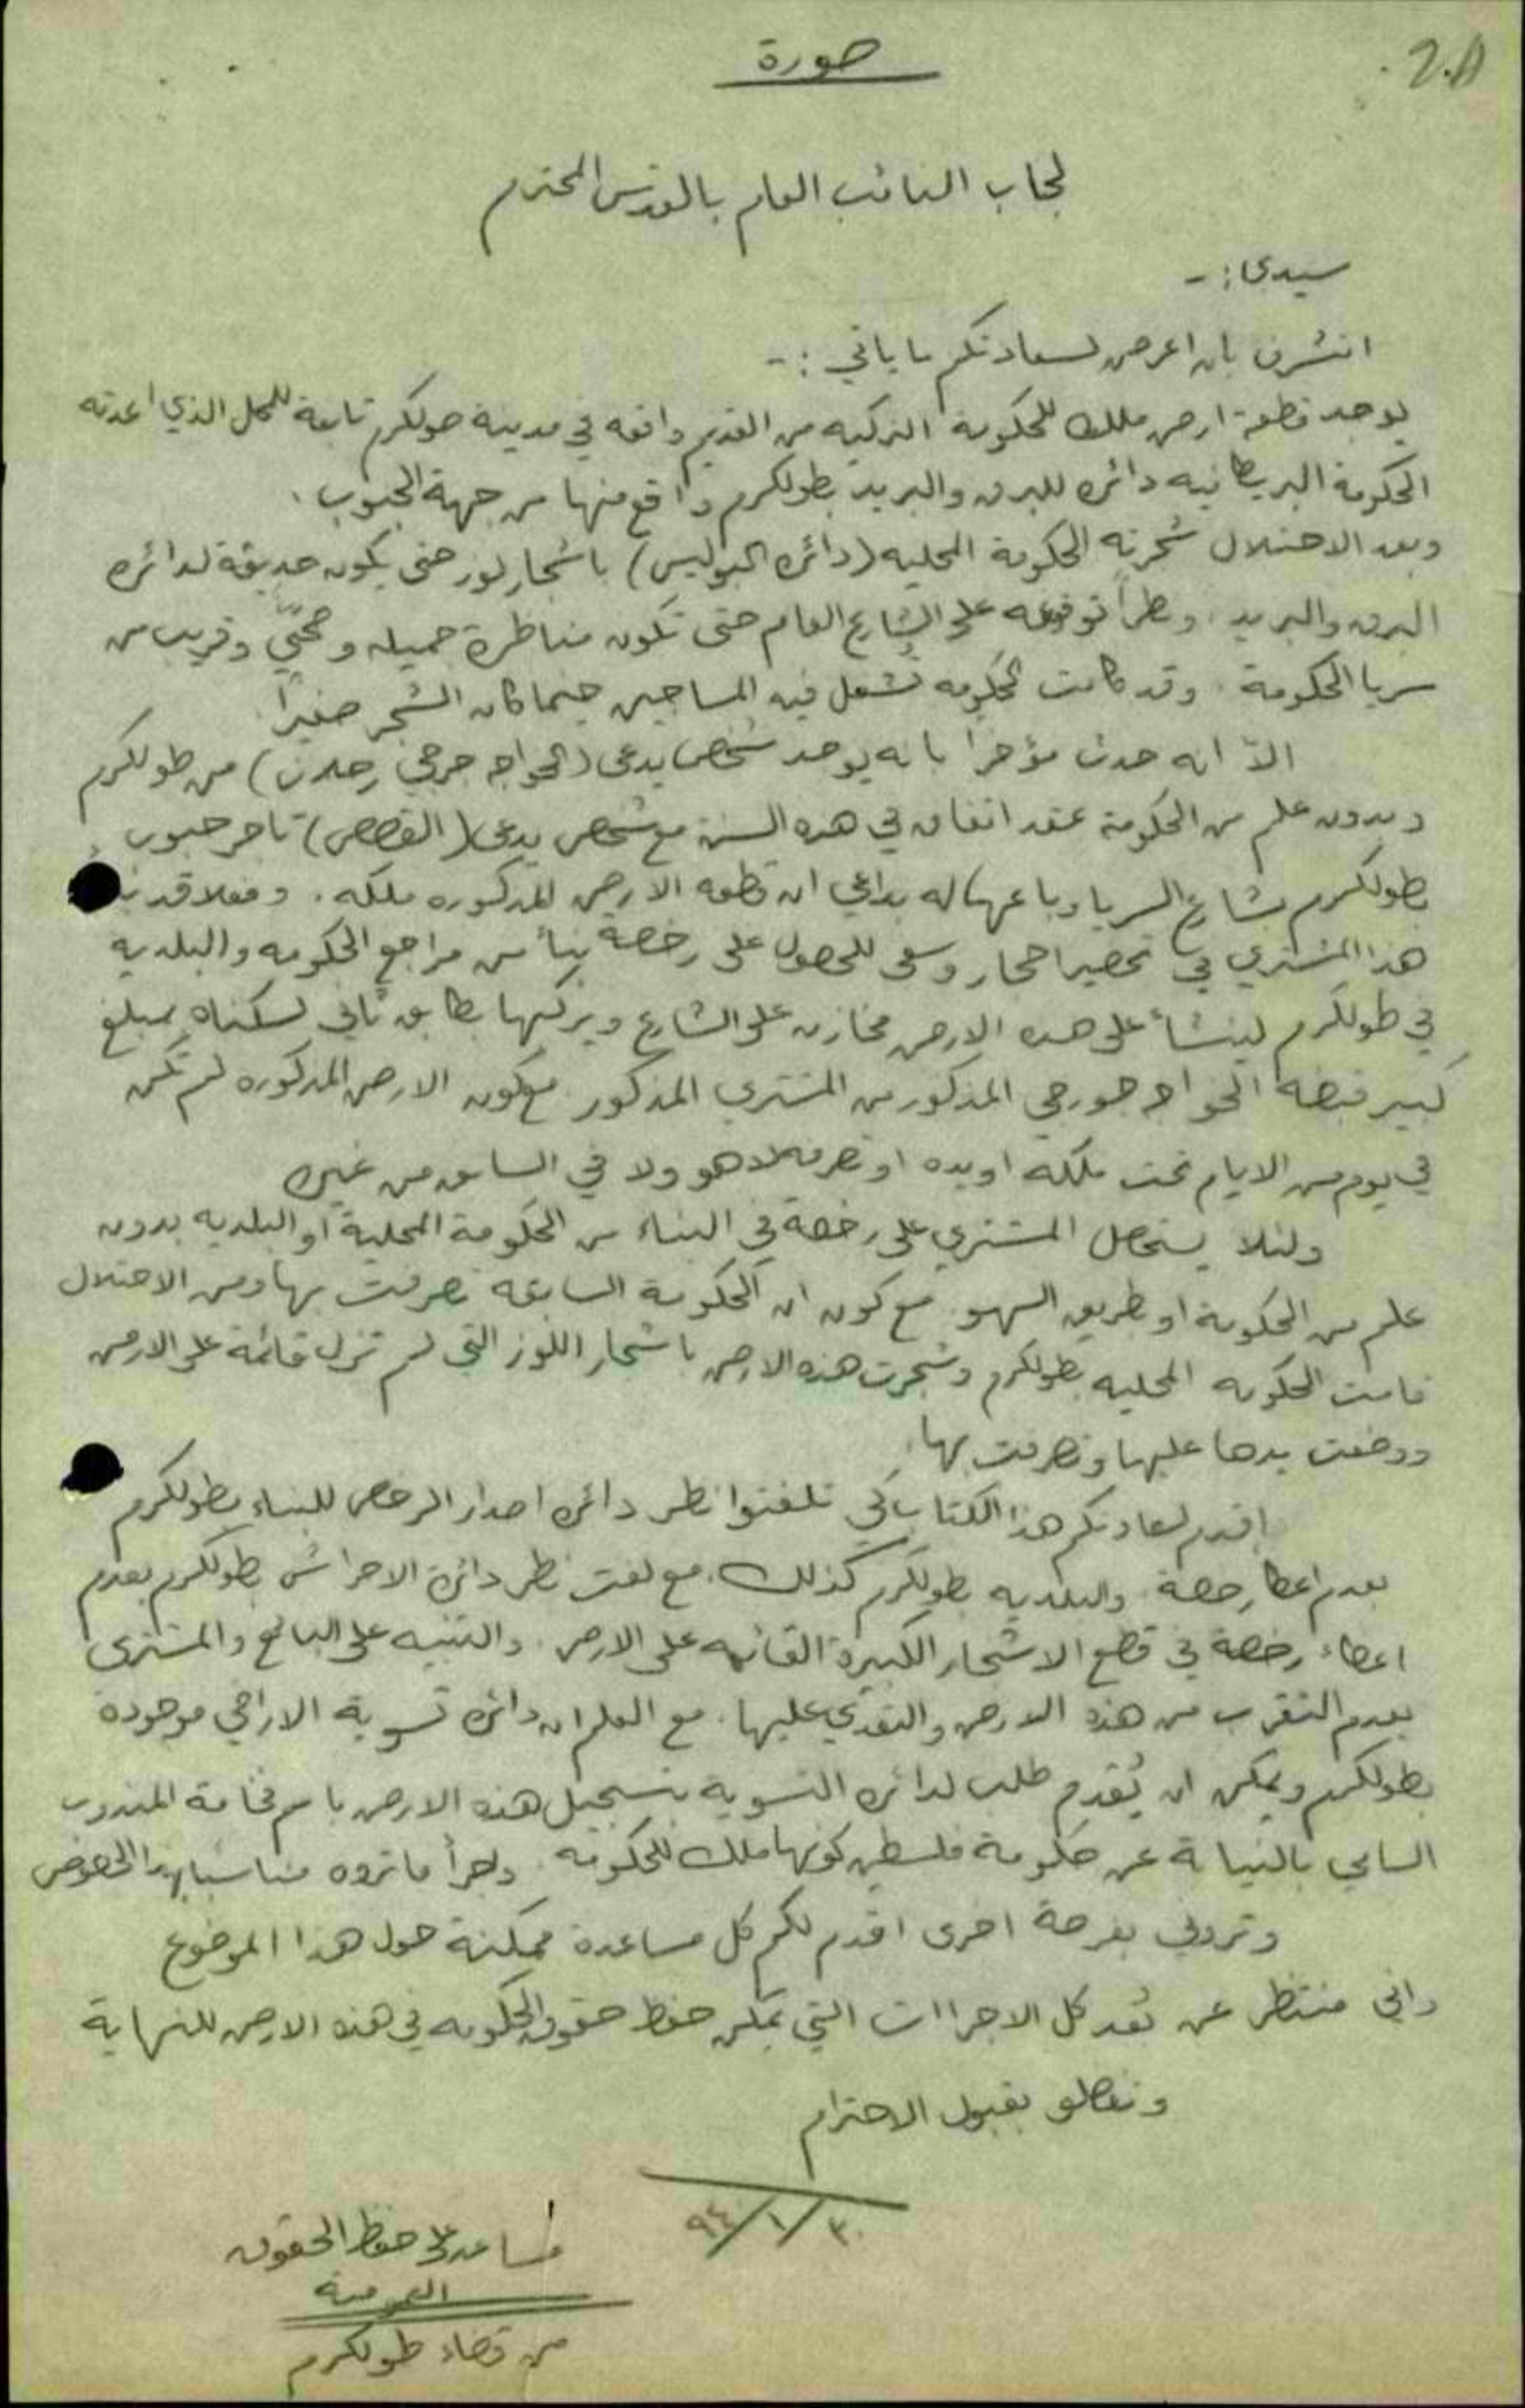 2.A
صورة
لجناب النائب العام بالقدس المحترم
سيدي :-
اتشرف بان اعرض لسعادتكم ما ياتي :-
يوجد قطعة ارض ملك للحكومة التركيه من القديم واقعه في مدينة طولكرم تابعة للمحل الذي اعدته
الحكومة البريطانيه دائره للبرق والبريد بطولكرم واقع منها من جهة الجنوب .
وبعد الاحتلال شجرته الحكومة المحليه (دائره البوليس) باشجار لوز حتى يكون حديقة لدائره
البرق والبريد . ونظراً لوقوعه على الشارع العام حتى تكون مناظرة جميله وصحتي وقريب من
سريا الحكومة . وقد كانت الحكومه تشغل فيه المساجين حينما كان الشجر صغيراً
الاّ انه حدث مؤخراً بانه يوجد شخص يدعى (الخواجه جرجي) من طولكرم
وبدون علم من الحكومة عقد اتفاق في هذه السنة مع شخص يدعى (القصص) تاجر حبوب
بطولكرم بشارع السريا وباعها له بداعي ان قطعه الارض المذكوره ملكه . وفعلا قد
هذا المشتري في تحضير احجار وسعى للحصول على رخصة بنأ من مراجع الحكومه والبلديه
في طولكرم لينشأ على هذه الارض مخازن على الشارع ويركبها بطابق ثاني لسكناه بمبلغ
كبير قبضه الخواجه جورجي المذكور من المشتري المذكور مع كون الارض المذكوره لم تكن
في يوم من الايام تحت ملكه او يده او تصرفه لا هو ولا في السابق من غيره
ولئلا يستحصل المشتري على رخصة في البناء من الحكومة المحلية او البلديه بدون
علم من الحكومة او بطريق السهو مع كون ان الحكومة السابقه تصرفت بها ومن الاحتلال
قامت الحكومه المحليه بطولكرم وشجرت هذه الارض باشجار اللوز التي لم تزل قائمة على الارض
ووضعت يدها عليها وتصرفت بها .
اقدم لسعادتكم هذا الكتاب كي تلفتوا نظر دائره اصدار الرخص للبناء بطولكرم
بعدم اعطا رخصة . والبلديه بطولكرم كذلك . مع لفت نظر دائرة الاحراش بطولكرم بعدم
اعطاء رخصة في قطع الاشجار الكبيرة القائمه على الارض . والتنبيه على البائع والمشتري
بعدم التقرب من هذه الارض والتعدي عليها . مع العلم ان دائره تسوية الاراضي موجودة
بطولكرم ويمكن ان يُقدم طلب لدائره التسوية بتسجيل هذه الارض باسم فخامة المندوب
السامي بالنيابة عن حكومة فلسطين كونها ملك للحكومه . واجرأ ما تروه مناسبا بهذا الخصوص
وتروني بفرصة اخرى اقدم لكم كل مساعدة ممكنة حول هذا الموضوع
واني منتظر عن بُعد كل الاجراات التي يمكن حفظ حقوق الحكومه في هذه الارض للنهاية
وتفضلو بقبول الاحترام
٣٠/١/٩٤٠
مساعد على حفظ الحقوق
العمومية
من قضاء طولكرم